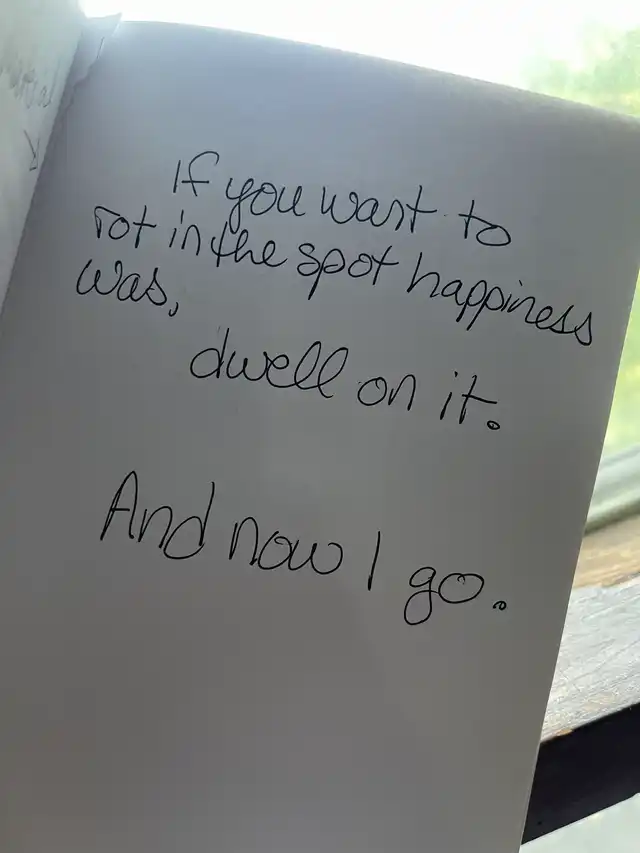 If you want to
rot in the spot happiness
was,
dwell on it.
And now I go.